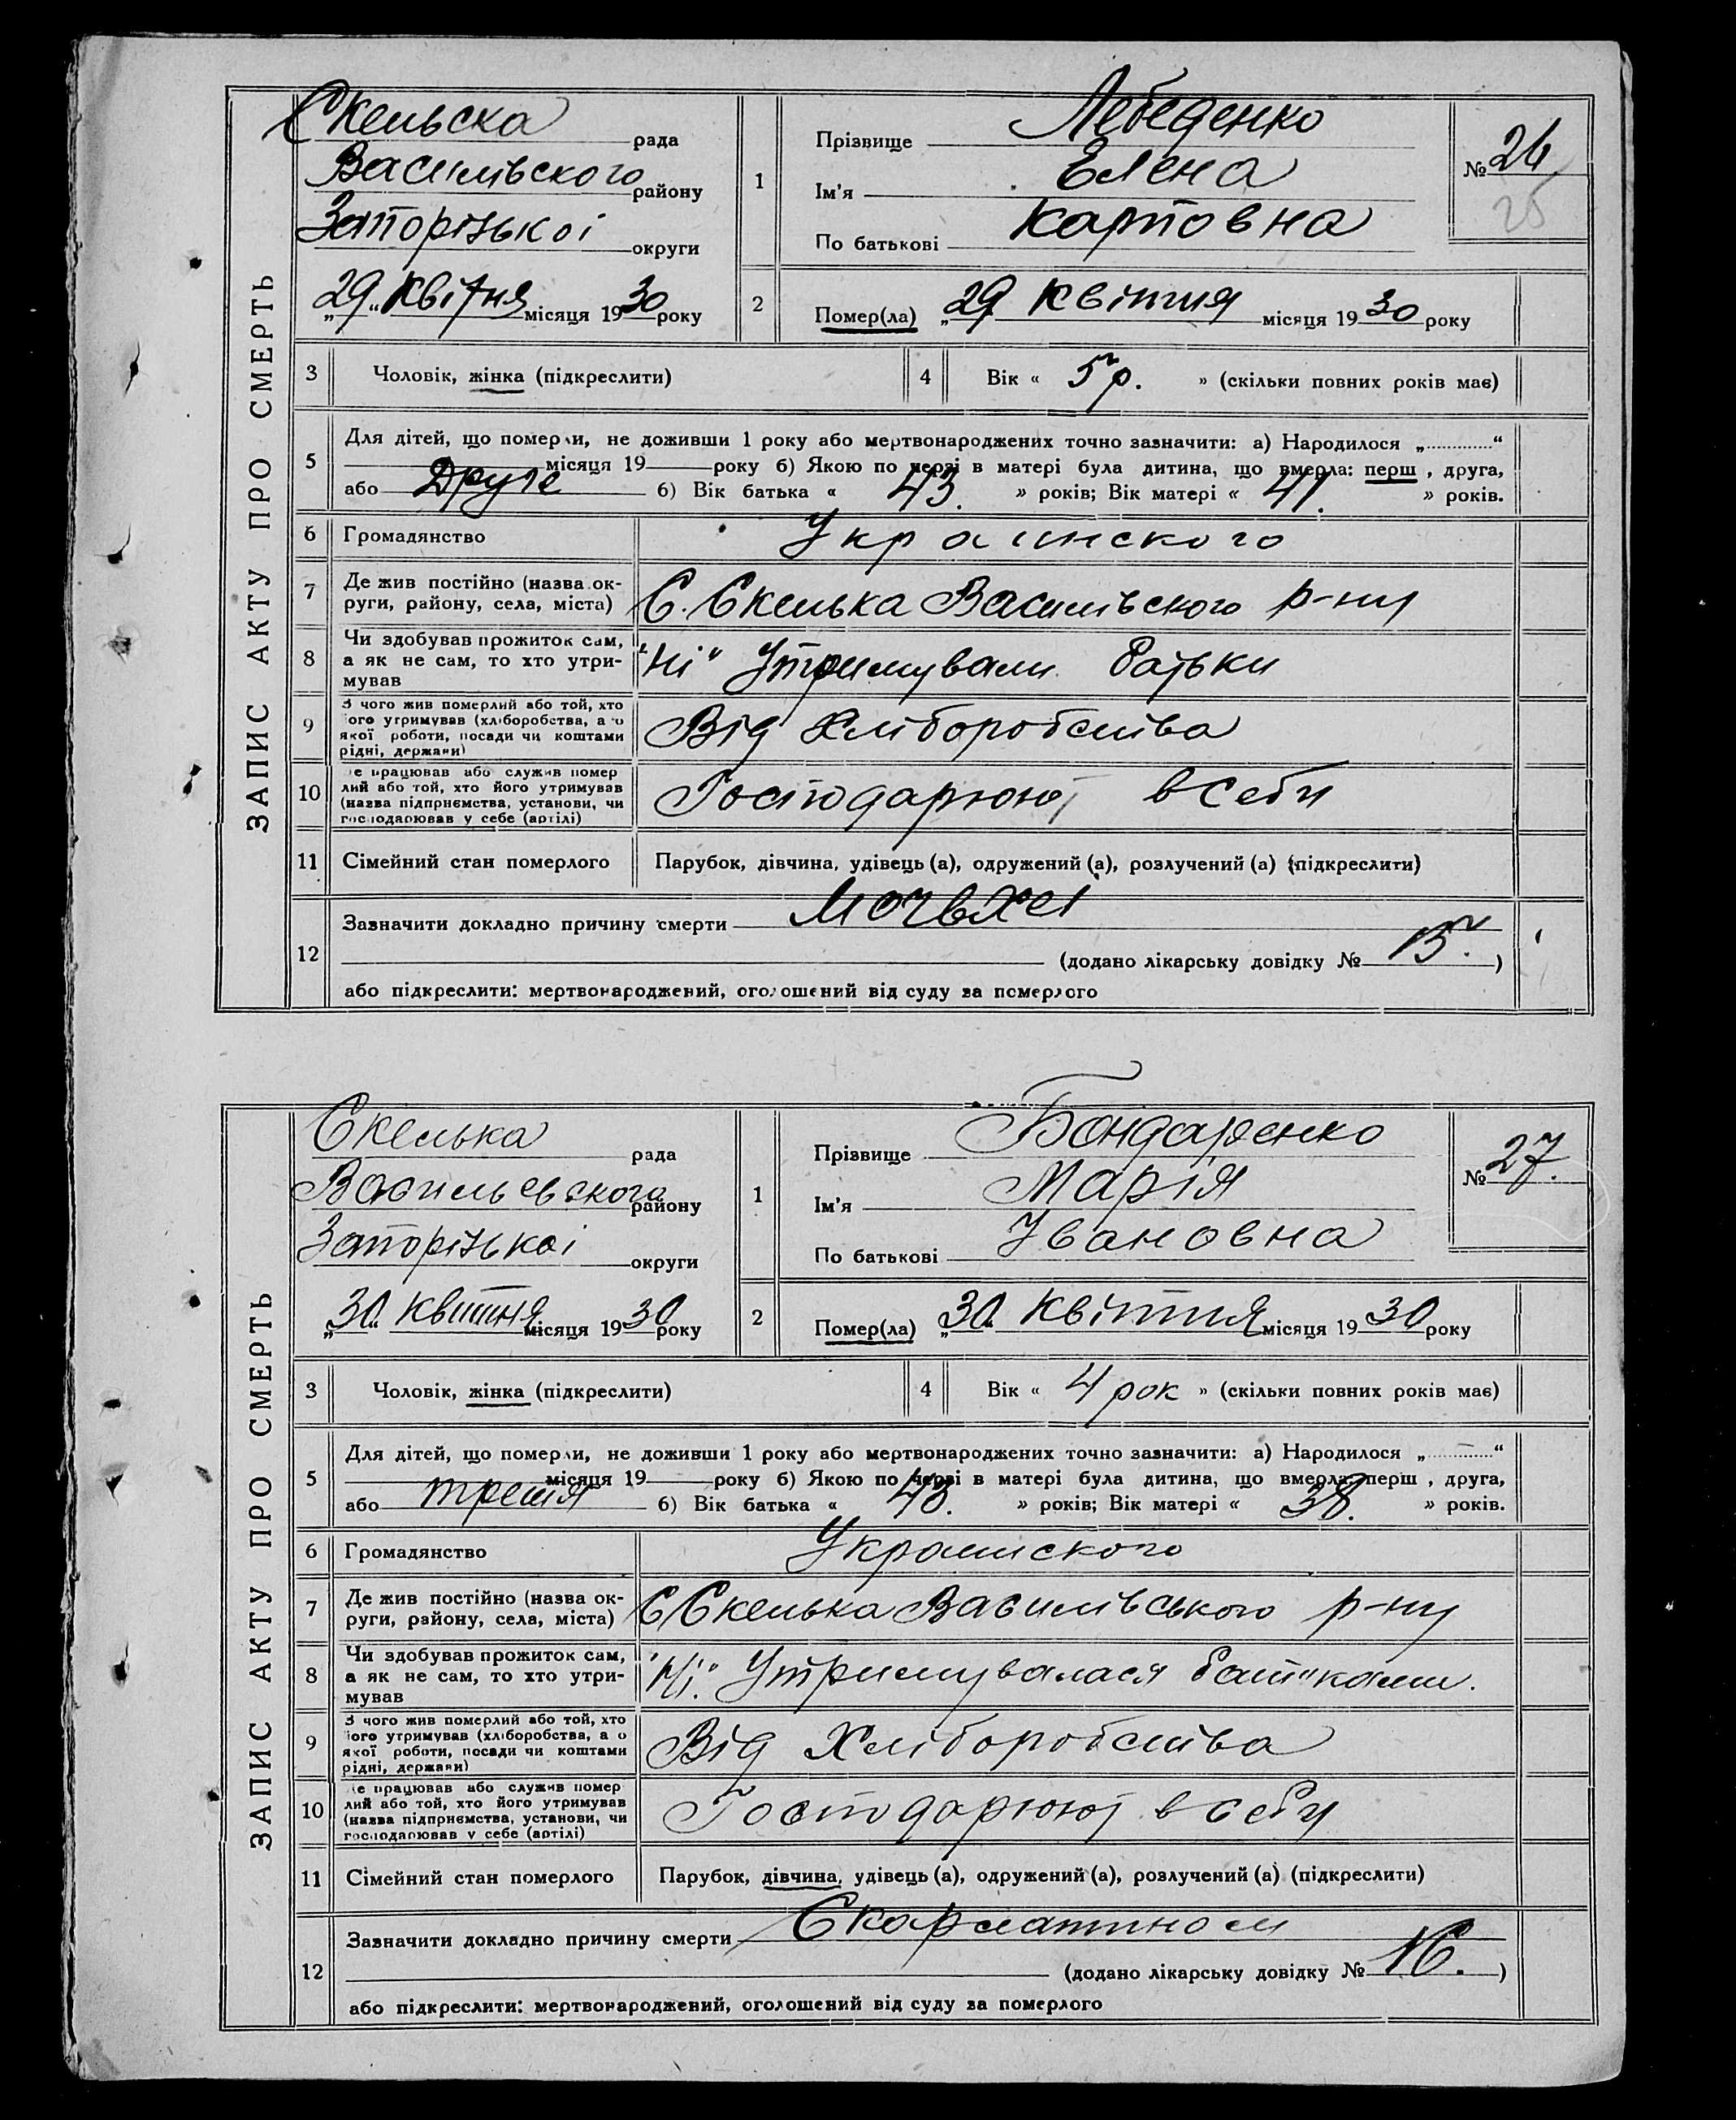 ЗАПИС АКТУ ПРО СМЕРТЬ
Скельска рада
Василівского району
Запорізькоі округи
„29“ Квітня місяця 1930 року
1
Прізвище Лебеденко
Ім'я Елена
По батькові Карповна
№ 26
25
2
Помер(ла) „29 Квітня місяця 1930 року
3 Чоловік, жінка (підкреслити)
4 Вік « 5 р. » (скільки повних років має)
5 Для дітей, що померли, не доживши 1 року або мертвонароджених точно зазначити: а) Народилося „ “
місяця 19 року б) Якою по черзі в матері була дитина, що вмерла: перш , друга,
або Друге б) Вік батька « 43. » років; Вік матері « 41. » років.
6 Громадянство Украинского
7 Де жив постійно (назва ок-
руги, району, села, міста) С. Скелька Василівского р-ну
8 Чи здобував прожиток сам,
а як не сам, то хто утри-
мував "Ні" Утримували батьки
9 З чого жив померлий або той, хто
його утримував (хліборобства, а о
якої роботи, посади чи коштами
рідні, держави) Від Хліборобства
10 е працював або служив помер
лий або той, хто його утримував
(назва підприємства, установи, чи
господарював у себе (артілі) Господарюют в себи
11 Сімейний стан померлого Парубок, дівчина, удівець (а), одружений (а), розлучений (а) (підкреслити)
12 Зазначити докладно причину смерти
(додано лікарську довідку № 15. )
або підкреслити: мертвонароджений, оголошений від суду за померлого
ЗАПИС АКТУ ПРО СМЕРТЬ
Скелька рада
Васильевского району
Запорізькоі округи
„30“ квітня місяця 1930 року
1
Прізвище Бондаренко
Ім'я Марія
По батькові Івановна
№ 27.
2
Помер(ла) „30“ Квітня місяця 1930 року
3 Чоловік, жінка (підкреслити)
4 Вік « 4 рок » (скільки повних років має)
5 Для дітей, що померли, не доживши 1 року або мертвонароджених точно зазначити: а) Народилося „ “
місяця 19 року б) Якою по черзі в матері була дитина, що вмерла: перш , друга,
або третя б) Вік батька « 43. » років; Вік матері « 38. » років.
6 Громадянство Украинского
7 Де жив постійно (назва ок-
руги, району, села, міста) С Скелька Василівського р-ну
8 Чи здобував прожиток сам,
а як не сам, то хто утри-
мував "Ні." Утримувалася бат"ками.
9 З чого жив померлий або той, хто
його утримував (хліборобства, а о
якої роботи, посади чи коштами
рідні, держави) Від Хліборобства
10 е працював або служив помер
лий або той, хто його утримував
(назва підприємства, установи, чи
господарював у себе (артілі) Господарюют в себи
11 Сімейний стан померлого Парубок, дівчина, удівець (а), одружений (а), розлучений (а) (підкреслити)
12 Зазначити докладно причину смерти Скарлатином
(додано лікарську довідку № 16. )
або підкреслити: мертвонароджений, оголошений від суду за померлого